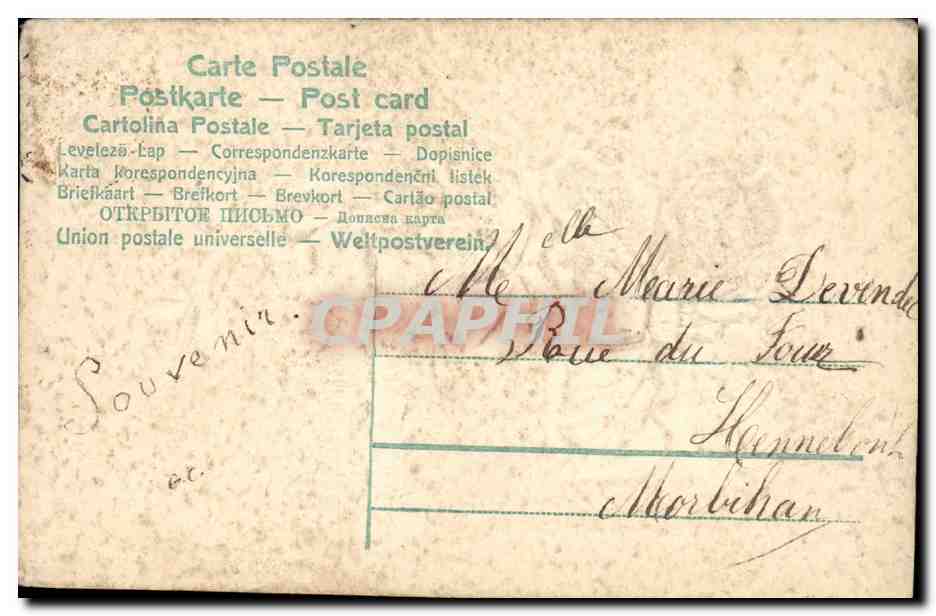 Carte Postale
Postkarte — Post card
Cartolina Postale — Tarjeta postal
Levelezö-Lap — Correspondenzkarte — Dopisnice
Karta korespondencyjna — Korespondenčni listek
Briefkaart — Brefkort — Brevkort — Cartão postal
ОТКРЫТОЕ ПИСЬМО — Дописна карта
Union postale universelle — Weltpostverein
Melle Marie Devendec
Rue du Four
Hennebont
Morbihan
Souvenir.
CPAPHIL